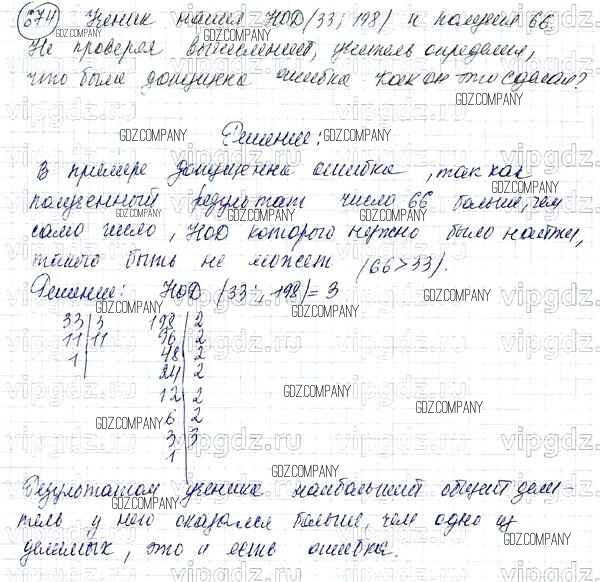 674 Ученик нашел НОД(33; 198) и получил 66.
Не проверяя вычислений, учитель определил,
что была допущена ошибка. Как он это сделал?
Решение:
В примере допущенна ошибка, так как
полученный результат число 66 больше, чем
само число, НОД которого нужно было найти,
такого быть не может (66>33).
Решение: НОД (33; 198) = 3
33 3 198 2
11 11 96 2
1 48 2
24 2
12 2
6 2
3 3
1
Результатом ученика наибольший общий дели-
тель у него оказался больше, чем одно из
делимых, это и есть ошибка.
GDZ.COMPANY
vipgdz.ru